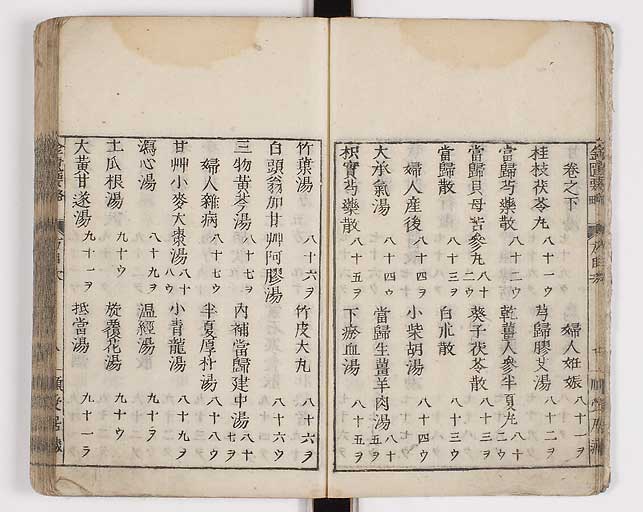 卷之下
婦人妊娠 八十一ヲ
桂枝茯苓丸 八十一ウ
芎歸膠艾湯 八十二ヲ
當歸芍藥散 八十二ウ
乾薑人參半夏丸 八十二ウ
當歸貝母苦參丸 八十二ウ
葵子茯苓散 八十三ヲ
當歸散 八十三ヲ
白朮散 八十三ウ
婦人産後 八十四ヲ
小柴胡湯 八十四ウ
大承氣湯 八十四ウ
當歸生薑羊肉湯 八十五ヲ
枳實芍藥散 八十五ヲ
下瘀血湯 八十五ヲ
竹葉湯 八十六ヲ
竹皮大丸 八十六ヲ
白頭翁加甘艸阿膠湯 八十六ウ
三物黄芩湯 八十七ヲ
内補當歸建中湯 八十七ヲ
婦人雜病 八十七ウ
半夏厚朴湯 八十八ウ
甘艸小麥大棗湯 八十八ウ
小青龍湯 八十九ヲ
瀉心湯 八十九ヲ
温經湯 九十ヲ
土瓜根湯 九十ウ
旋覆花湯 九十ウ
大黄甘遂湯 九十一ヲ
抵當湯 九十一ヲ